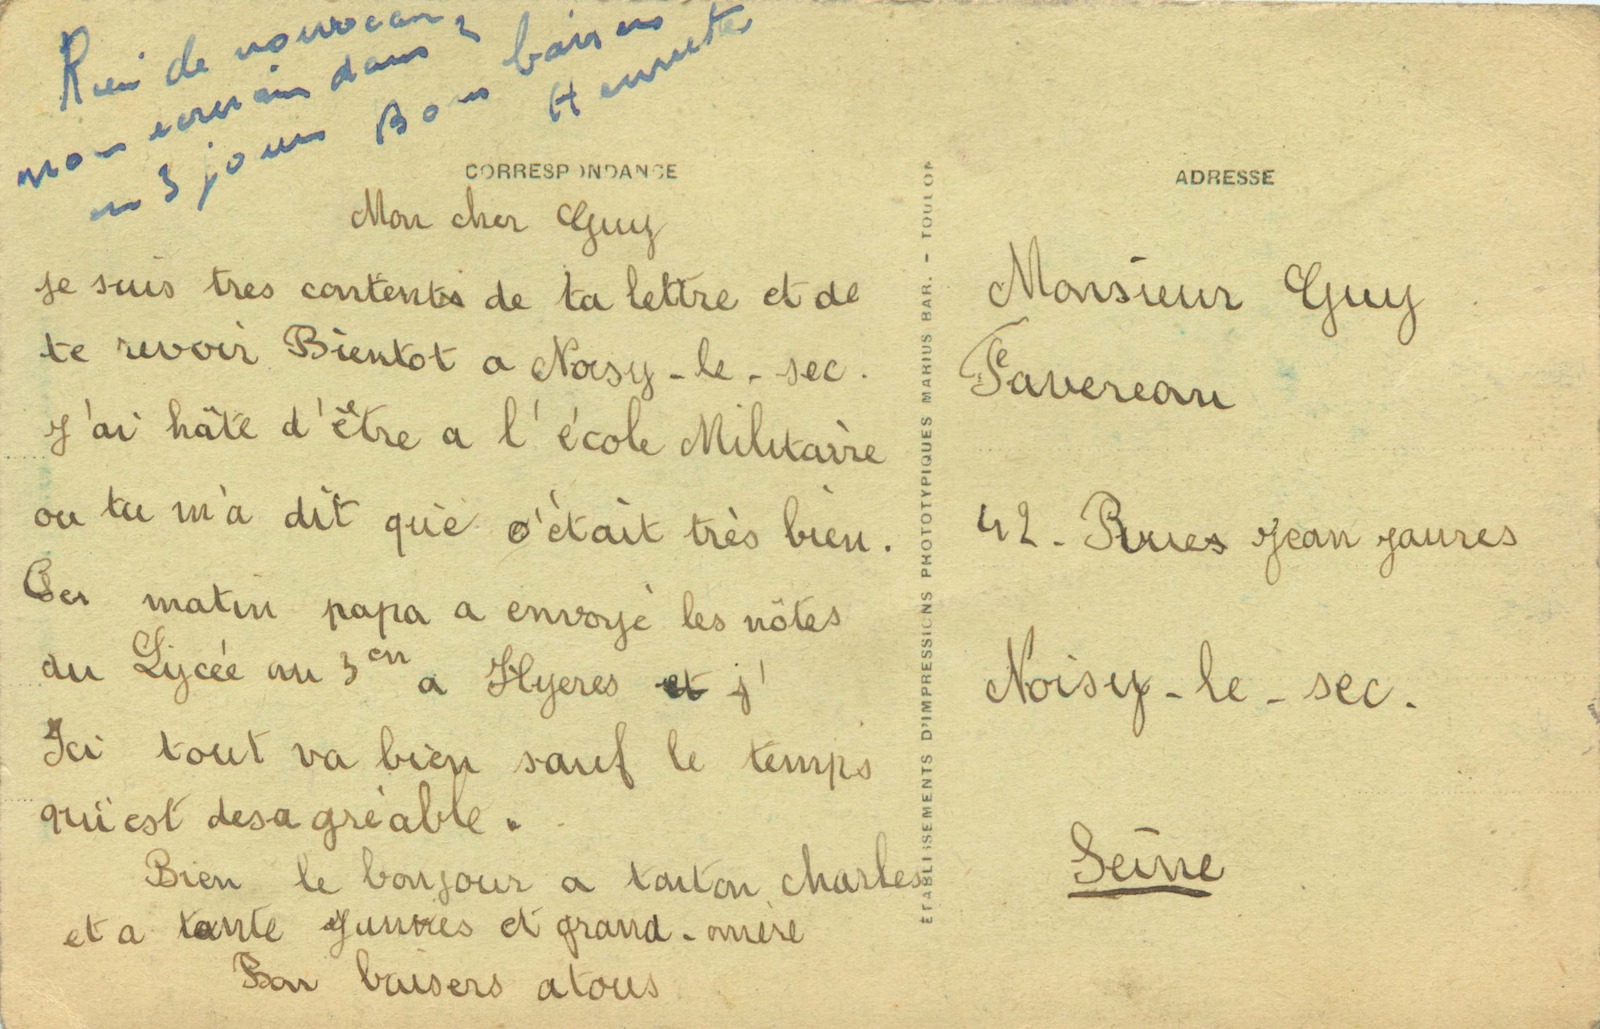 Rien de nouveau,
nous écrirain dans 2
ou 3 jours Bons baisers
Henriette
CORRESPONDANCE
Mon cher Guy
je suis tres contents de ta lettre et de
te revoir Bientot a Noisy-le-sec.
J'ai hâte d'être a l'école Militaire
ou tu m'a dit que c'était très bien.
Ces matin papa a envoyé les nôtes
du Lycée au 3en a Hyeres et j'
Ici tout va bien sauf le temps
qui est desagréable.
Bien le bonjour a tonton charles
et a tante et grand-mère
Bon baisers a tous
ETABLISSEMENTS D'IMPRESSIONS PHOTOTYPIQUES MARIUS BAR. - TOULON
ADRESSE
Monsieur Guy
Favereau
42 - Rues Jean Jaures
Noisy-le-sec.
Seine